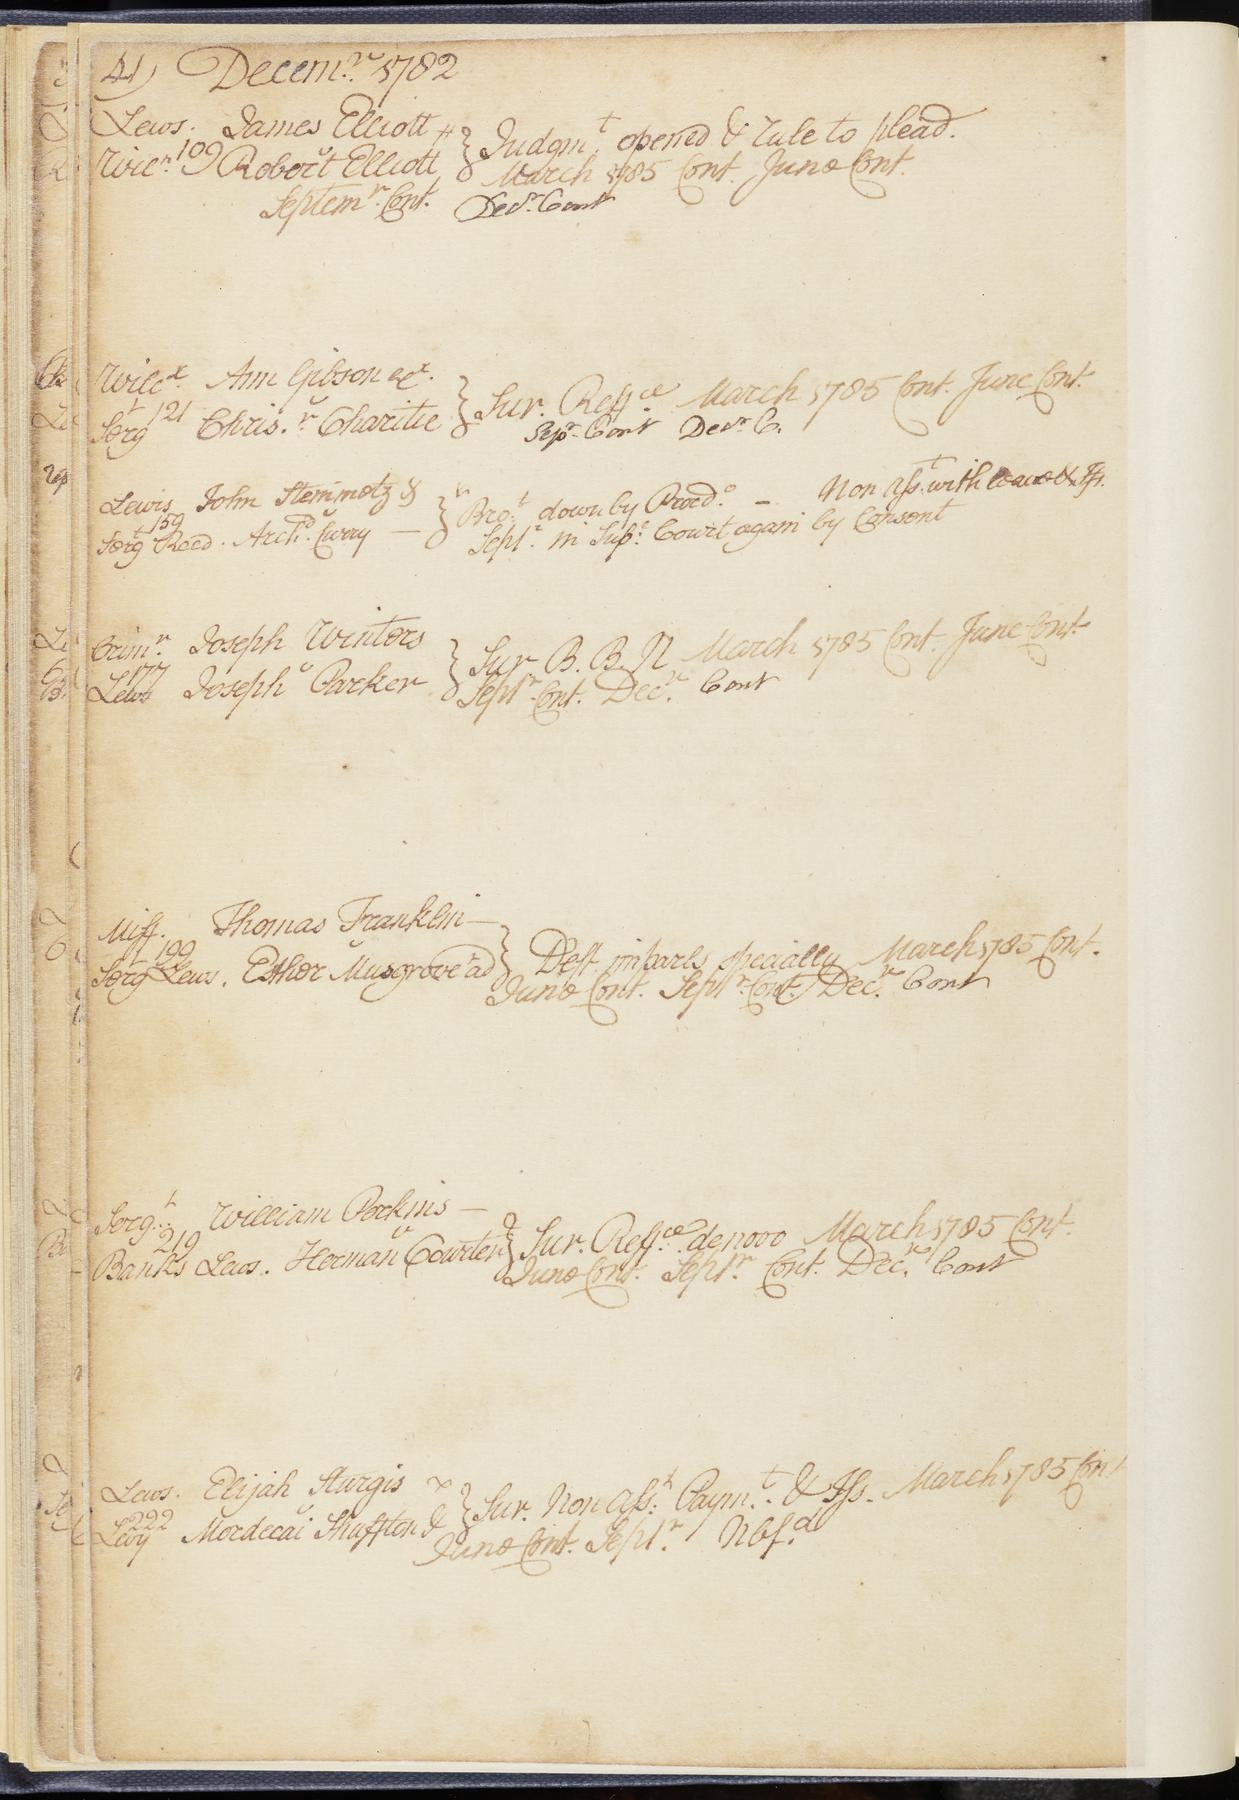 41) Decem.r 1782
Lews. James Elliott
Wilc.n 109 v Robert Elliott } Judgm.t opened & rule to plead.
March 1785 Cont. June Cont.
Septem.r Cont. Decr. Cont
Wilcx. Ann Gibson ex.x
Sergt 121 v Chris.r Charitie } Sur. Reffce March 1785 Cont. June Cont.
Sepr. Cont Decr C.
Lewis John Stemmetz &
Sergt 159 Reed. Archd. Curry — } Bro.t down by Proced.o — Non Asst. with leave & Iss.
Sept.r in Sup.e Court again by Consent
Joseph Winters
177 v Lews Joseph Parker } Sur B. B. N March 1785 Cont. June Cont.
Septr. Cont. Dec.r Cont
Miff. Thomas Franklin —
Sergt 199 Lews. v Esther Musgrove ad } Deft imparls specially March 1785 Cont.
June Cont. Septr. Cont. Dec.r Cont
Serg.t William Perkins —
219 Banks Lews. v Herman Courter } Sur. Reff.ce denovo March 1785 Cont.
June Cont. Septr. Cont. Dec.r Cont
Lews. Elijah Sturgis
222 Levy v Mordecai Shuffton } Sur. Non Ass.t Paym.t & Iss. March 1785 Cont
June Cont. Sept.r